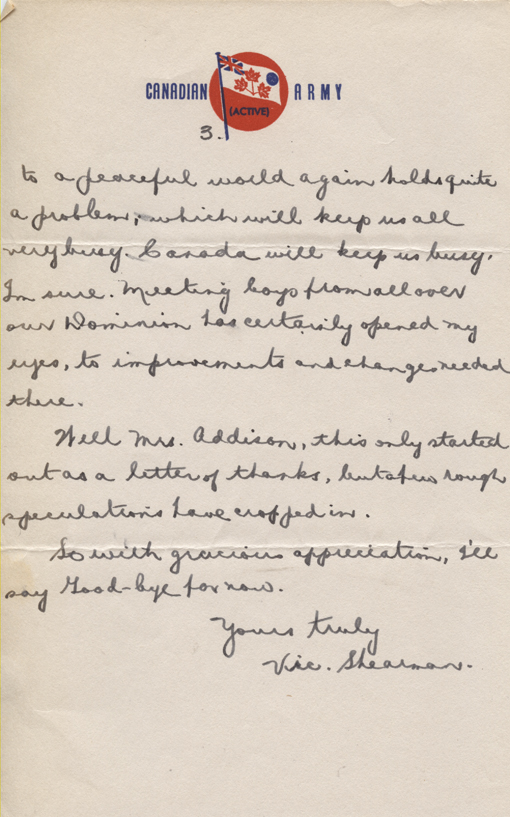 CANADIAN (ACTIVE) ARMY
3.
to a peaceful world again holds quite
a problem, which will keep us all
very busy. Canada will keep us busy,
I'm sure. Meeting boys from all over
our Dominion has certainly opened my
eyes, to improvements and changes needed
there.
Well Mrs. Addison, this only started
out as a letter of thanks, but a few rough
speculations have cropped in.
So with gracious appreciation, I'll
say Good-bye for now.
Yours truly
Vic. Shearman.